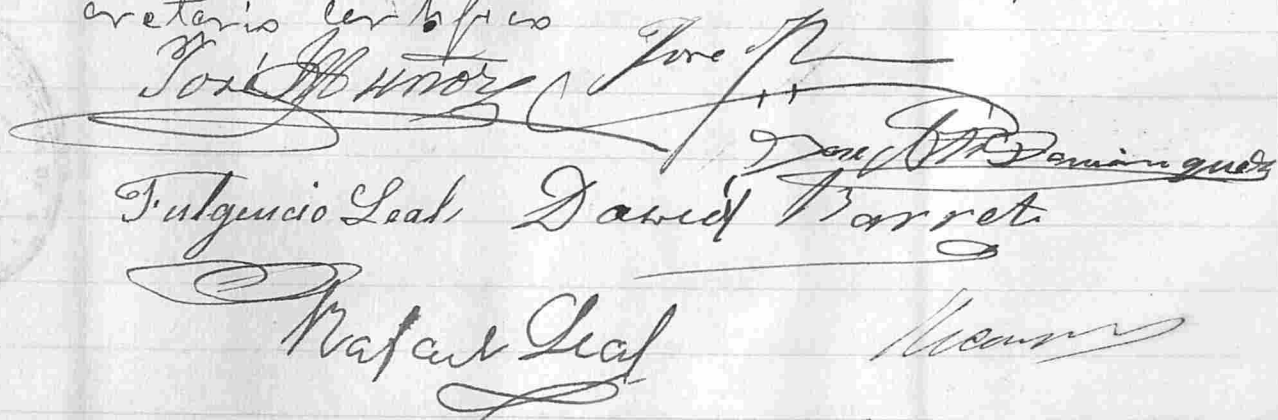 cretario certifico
José Muñoz José
José Domínguez
Fulgencio Leal David Barreto
Rafael Leal